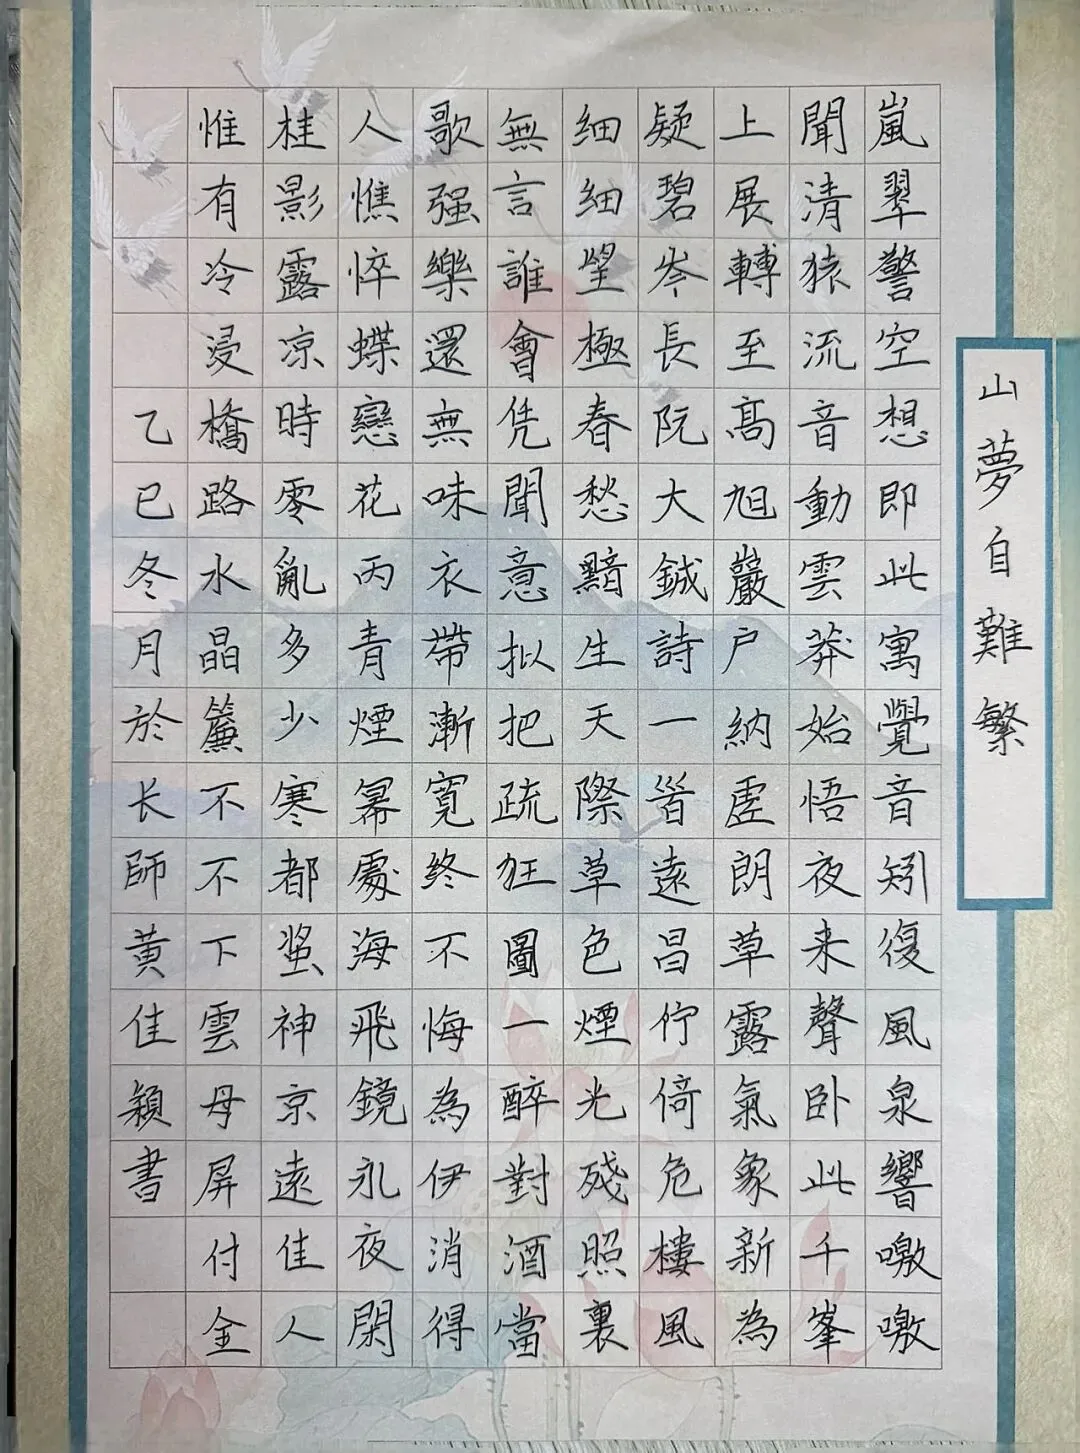 山夢自難繁
嵐翠警空想即此寓覺音矧復風泉響噭噭
聞清猿流音動雲莽始悟夜来聲卧此千峯
上展轉至髙旭巖户納虛朗草露氣象新為
疑碧岑長阮大鋮詩一首遠昌佇倚危樓風
細細望極春愁黯生天際草色煙光殘照裏
無言誰會凭聞意拟把疏狂圖一醉對酒當
歌强樂還無味衣帶漸寬終不悔為伊消得
人憔悴蝶戀花丙青煙冪處海飛鏡永夜閑
桂影露凉時零亂多少寒都螀神京遠佳人
惟有冷浸橋路水晶簾不不下雲母屏付金
乙巳冬月於长師黄佳穎書